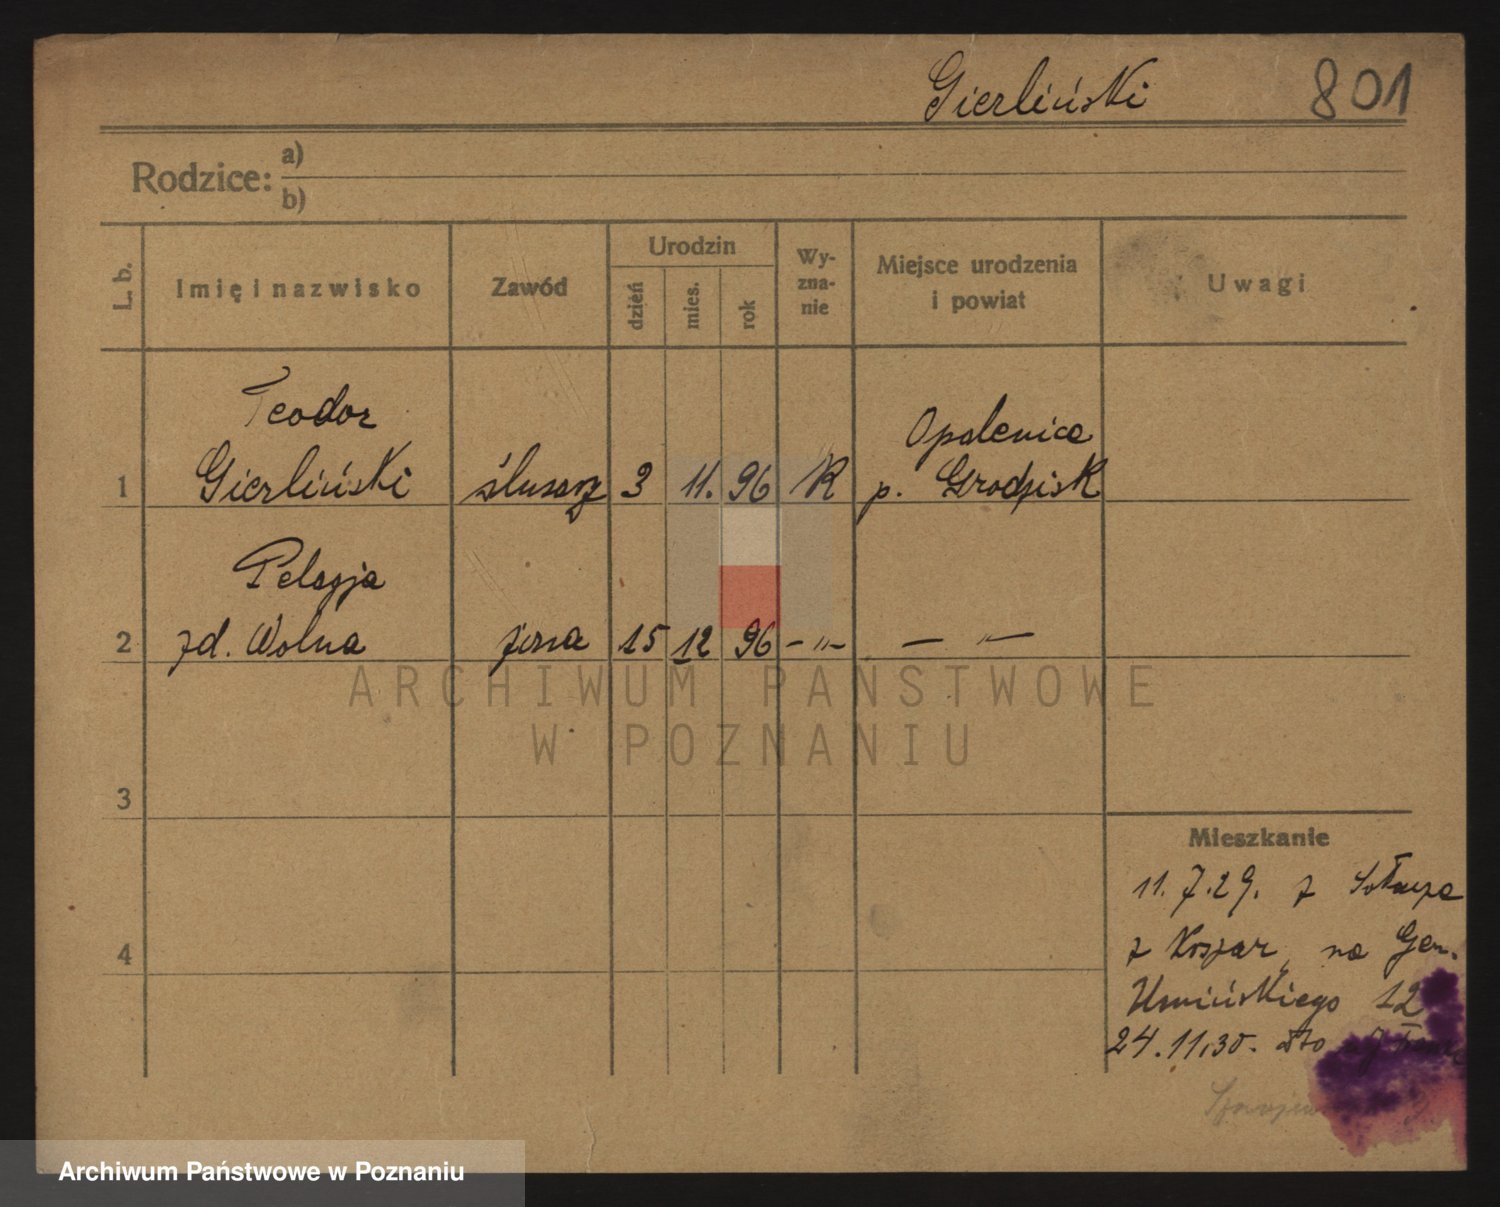 Gierliński 801
Rodzice: a)
b)
L. b.
Imię i nazwisko
Zawód
Urodzin
dzień
mies.
rok
Wy-
zna-
nie
Miejsce urodzenia
i powiat
Uwagi
Teodor
Opalenica
1 Gierliński ślusarz 3 11. 96 R p. Grodzisk
Pelagja
2 zd. Wolna żona 15 12 96 -"- - "-
ARCHIWUM PAŃSTWOWE
W POZNANIU
3
Mieszkanie
11.7.29. z
4
z Koszar, na Gen.
Umińskiego 12
24.11.30. do
Archiwum Państwowe w Poznaniu